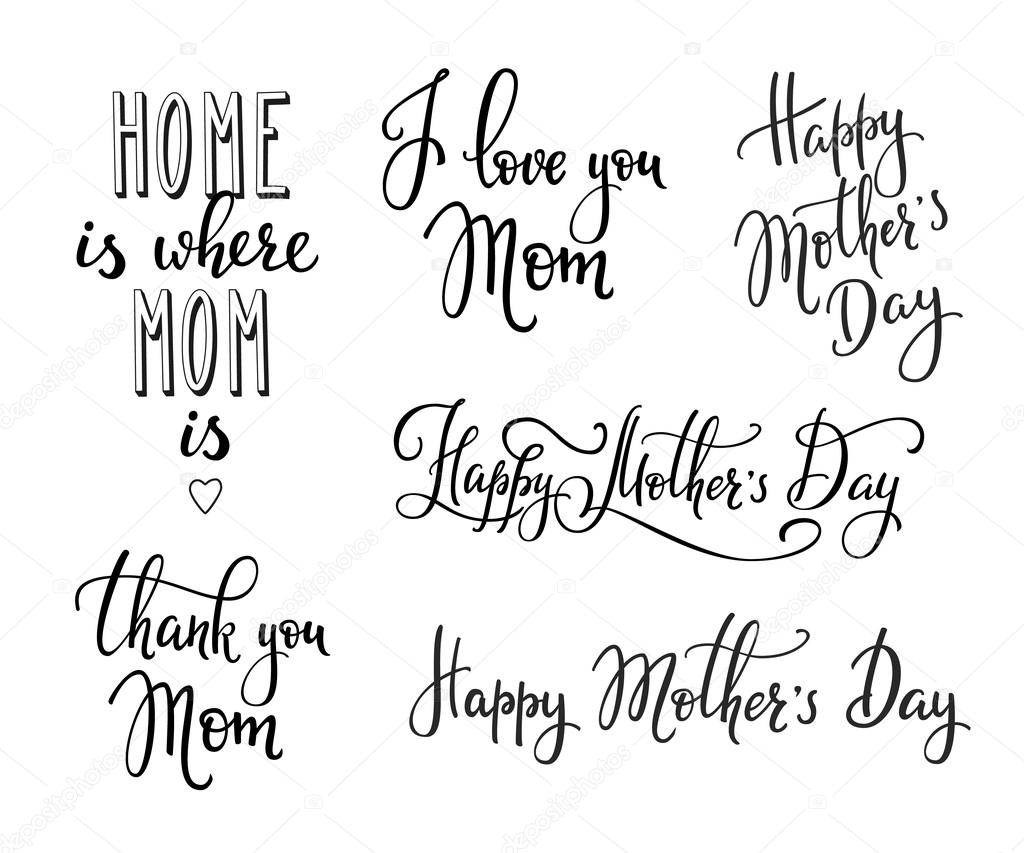 HOME
is where
MOM
is
I love you
Mom
Happy
Mother's
Day
Happy Mother's Day
thank you
Mom
Happy Mother's Day
depositphotos